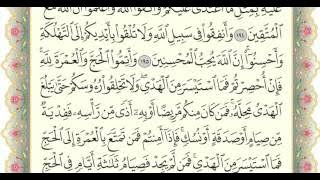 عَلَيْهِ بِمِثْلِ مَا ٱعْتَدَىٰ عَلَيْكُمْ وَٱتَّقُوا۟ ٱللَّهَ وَٱعْلَمُوٓا۟ أَنَّ ٱللَّهَ مَعَ
ٱلْمُتَّقِينَ ١٩٤ وَأَنفِقُوا۟ فِى سَبِيلِ ٱللَّهِ وَلَا تُلْقُوا۟ بِأَيْدِيكُمْ إِلَى ٱلتَّهْلُكَةِ
وَأَحْسِنُوٓا۟ إِنَّ ٱللَّهَ يُحِبُّ ٱلْمُحْسِنِينَ ١٩٥ وَأَتِمُّوا۟ ٱلْحَجَّ وَٱلْعُمْرَةَ لِلَّهِ
فَإِنْ أُحْصِرْتُمْ فَمَا ٱسْتَيْسَرَ مِنَ ٱلْهَدْىِ وَلَا تَحْلِقُوا۟ رُءُوسَكُمْ حَتَّىٰ يَبْلُغَ
ٱلْهَدْىُ مَحِلَّهُۥ فَمَن كَانَ مِنكُم مَّرِيضًا أَوْ بِهِۦٓ أَذًى مِّن رَّأْسِهِۦ فَفِدْيَةٌ
مِّن صِيَامٍ أَوْ صَدَقَةٍ أَوْ نُسُكٍ فَإِذَآ أَمِنتُمْ فَمَن تَمَتَّعَ بِٱلْعُمْرَةِ إِلَى ٱلْحَجِّ
فَمَا ٱسْتَيْسَرَ مِنَ ٱلْهَدْىِ فَمَن لَّمْ يَجِدْ فَصِيَامُ ثَلَٰثَةِ أَيَّامٍ فِى ٱلْحَجِّ